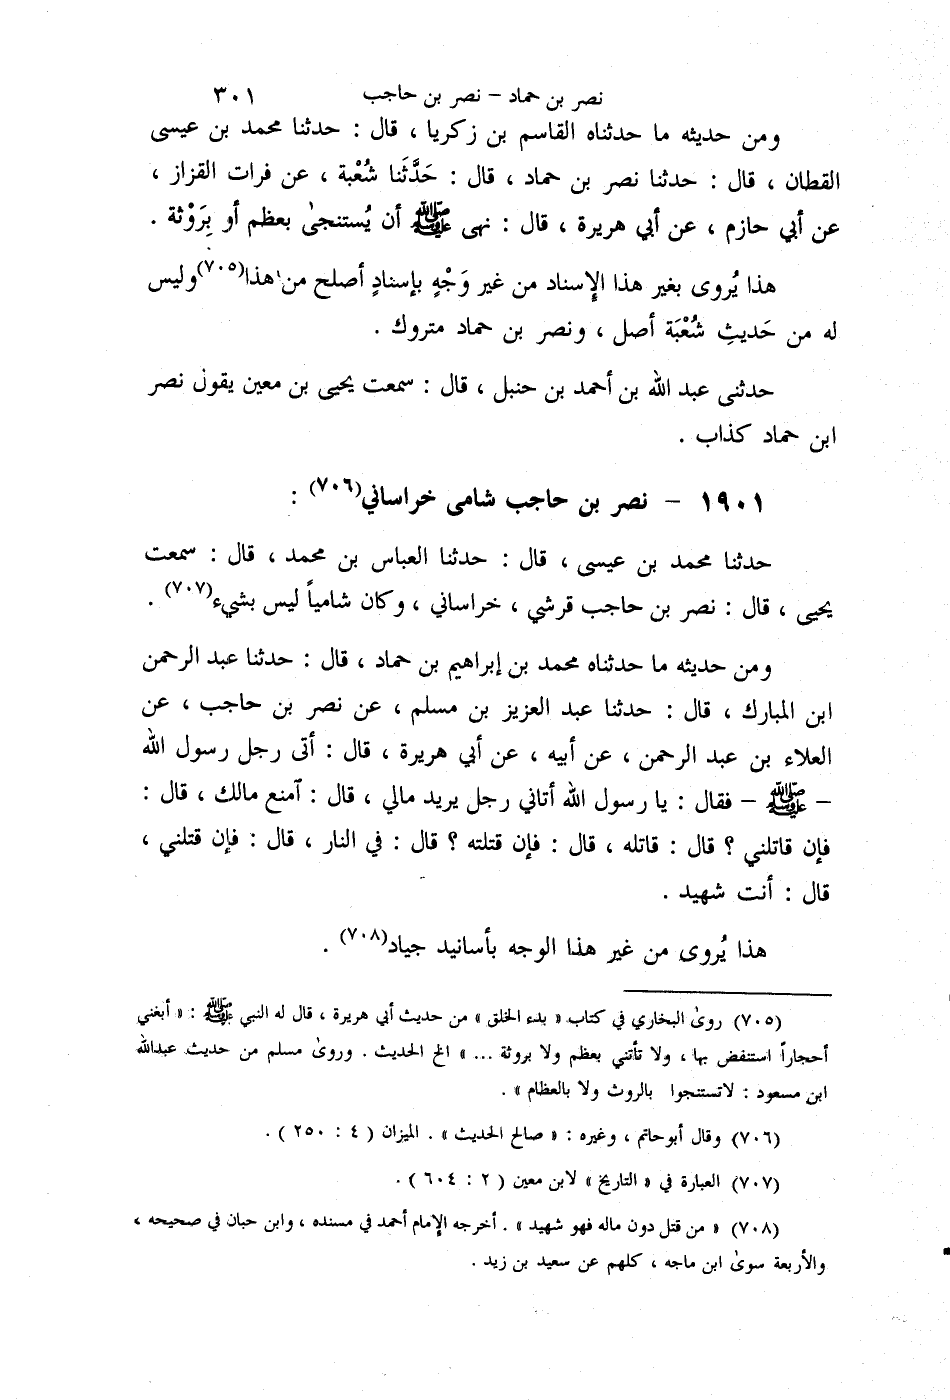 نصر بن حماد – نصر بن حاجب ٣٠١
ومن حديثه ما حدثناه القاسم بن زكريا ، قال : حدثنا محمد بن عيسى
القطان ، قال : حدثنا نصر بن حماد ، قال : حَدَّثَنا شُعْبة ، عن فرات القزاز ،
عن أبي حازم ، عن أبي هريرة ، قال : نهى ﷺ أن يُستنجىٰ بعظم أو بِرَوْثة .
هذا يُروى بغير هذا الإسناد من غير وَجْهٍ بإسنادٍ أصلح من هذا(٧٠٥) وليس
له من حَديثِ شُعْبَة أصل ، ونصر بن حماد متروك .
حدثنى عبد الله بن أحمد بن حنبل ، قال : سمعت يحيى بن معين يقول نصر
ابن حماد كذاب .
١٩٠١ – نصر بن حاجب شامى خراساني(٧٠٦) :
حدثنا محمد بن عيسى ، قال : حدثنا العباس بن محمد ، قال : سمعت
يحيى ، قال : نصر بن حاجب قرشي ، خراساني ، وكان شامياً ليس بشيء(٧٠٧) .
ومن حديثه ما حدثناه محمد بن إبراهيم بن حماد ، قال : حدثنا عبد الرحمن
ابن المبارك ، قال : حدثنا عبد العزيز بن مسلم ، عن نصر بن حاجب ، عن
العلاء بن عبد الرحمن ، عن أبيه ، عن أبي هريرة ، قال : أتى رجل رسول الله
– ﷺ – فقال : يا رسول الله أتاني رجل يريد مالي ، قال : آمنع مالك ، قال :
فإن قاتلني ؟ قال : قاتله ، قال : فإن قتلته ؟ قال : في النار ، قال : فإن قتلني ،
قال : أنت شهيد .
هذا يُروى من غير هذا الوجه بأسانيد جياد(٧٠٨) .
(٧٠٥) روىٰ البخاري في كتاب « بدء الخلق » من حديث أبي هريرة ، قال له النبي ﷺ : « أبغني
أحجاراً استنفض بها ، ولا تأتني بعظم ولا بروثة ... » الخ الحديث . وروىٰ مسلم من حديث عبدالله
ابن مسعود : لاتستنجوا بالروث ولا بالعظام » .
(٧٠٦) وقال أبوحاتم ، وغيره : « صالح الحديث » . الميزان ( ٤ : ٢٥٠ ) .
(٧٠٧) العبارة في « التاريخ » لابن معين ( ٢ : ٦٠٤ ) .
(٧٠٨) « من قتل دون ماله فهو شهيد » . أخرجه الإمام أحمد في مسنده ، وابن حبان في صحيحه ،
والأربعة سوىٰ ابن ماجه ، كلهم عن سعيد بن زيد .